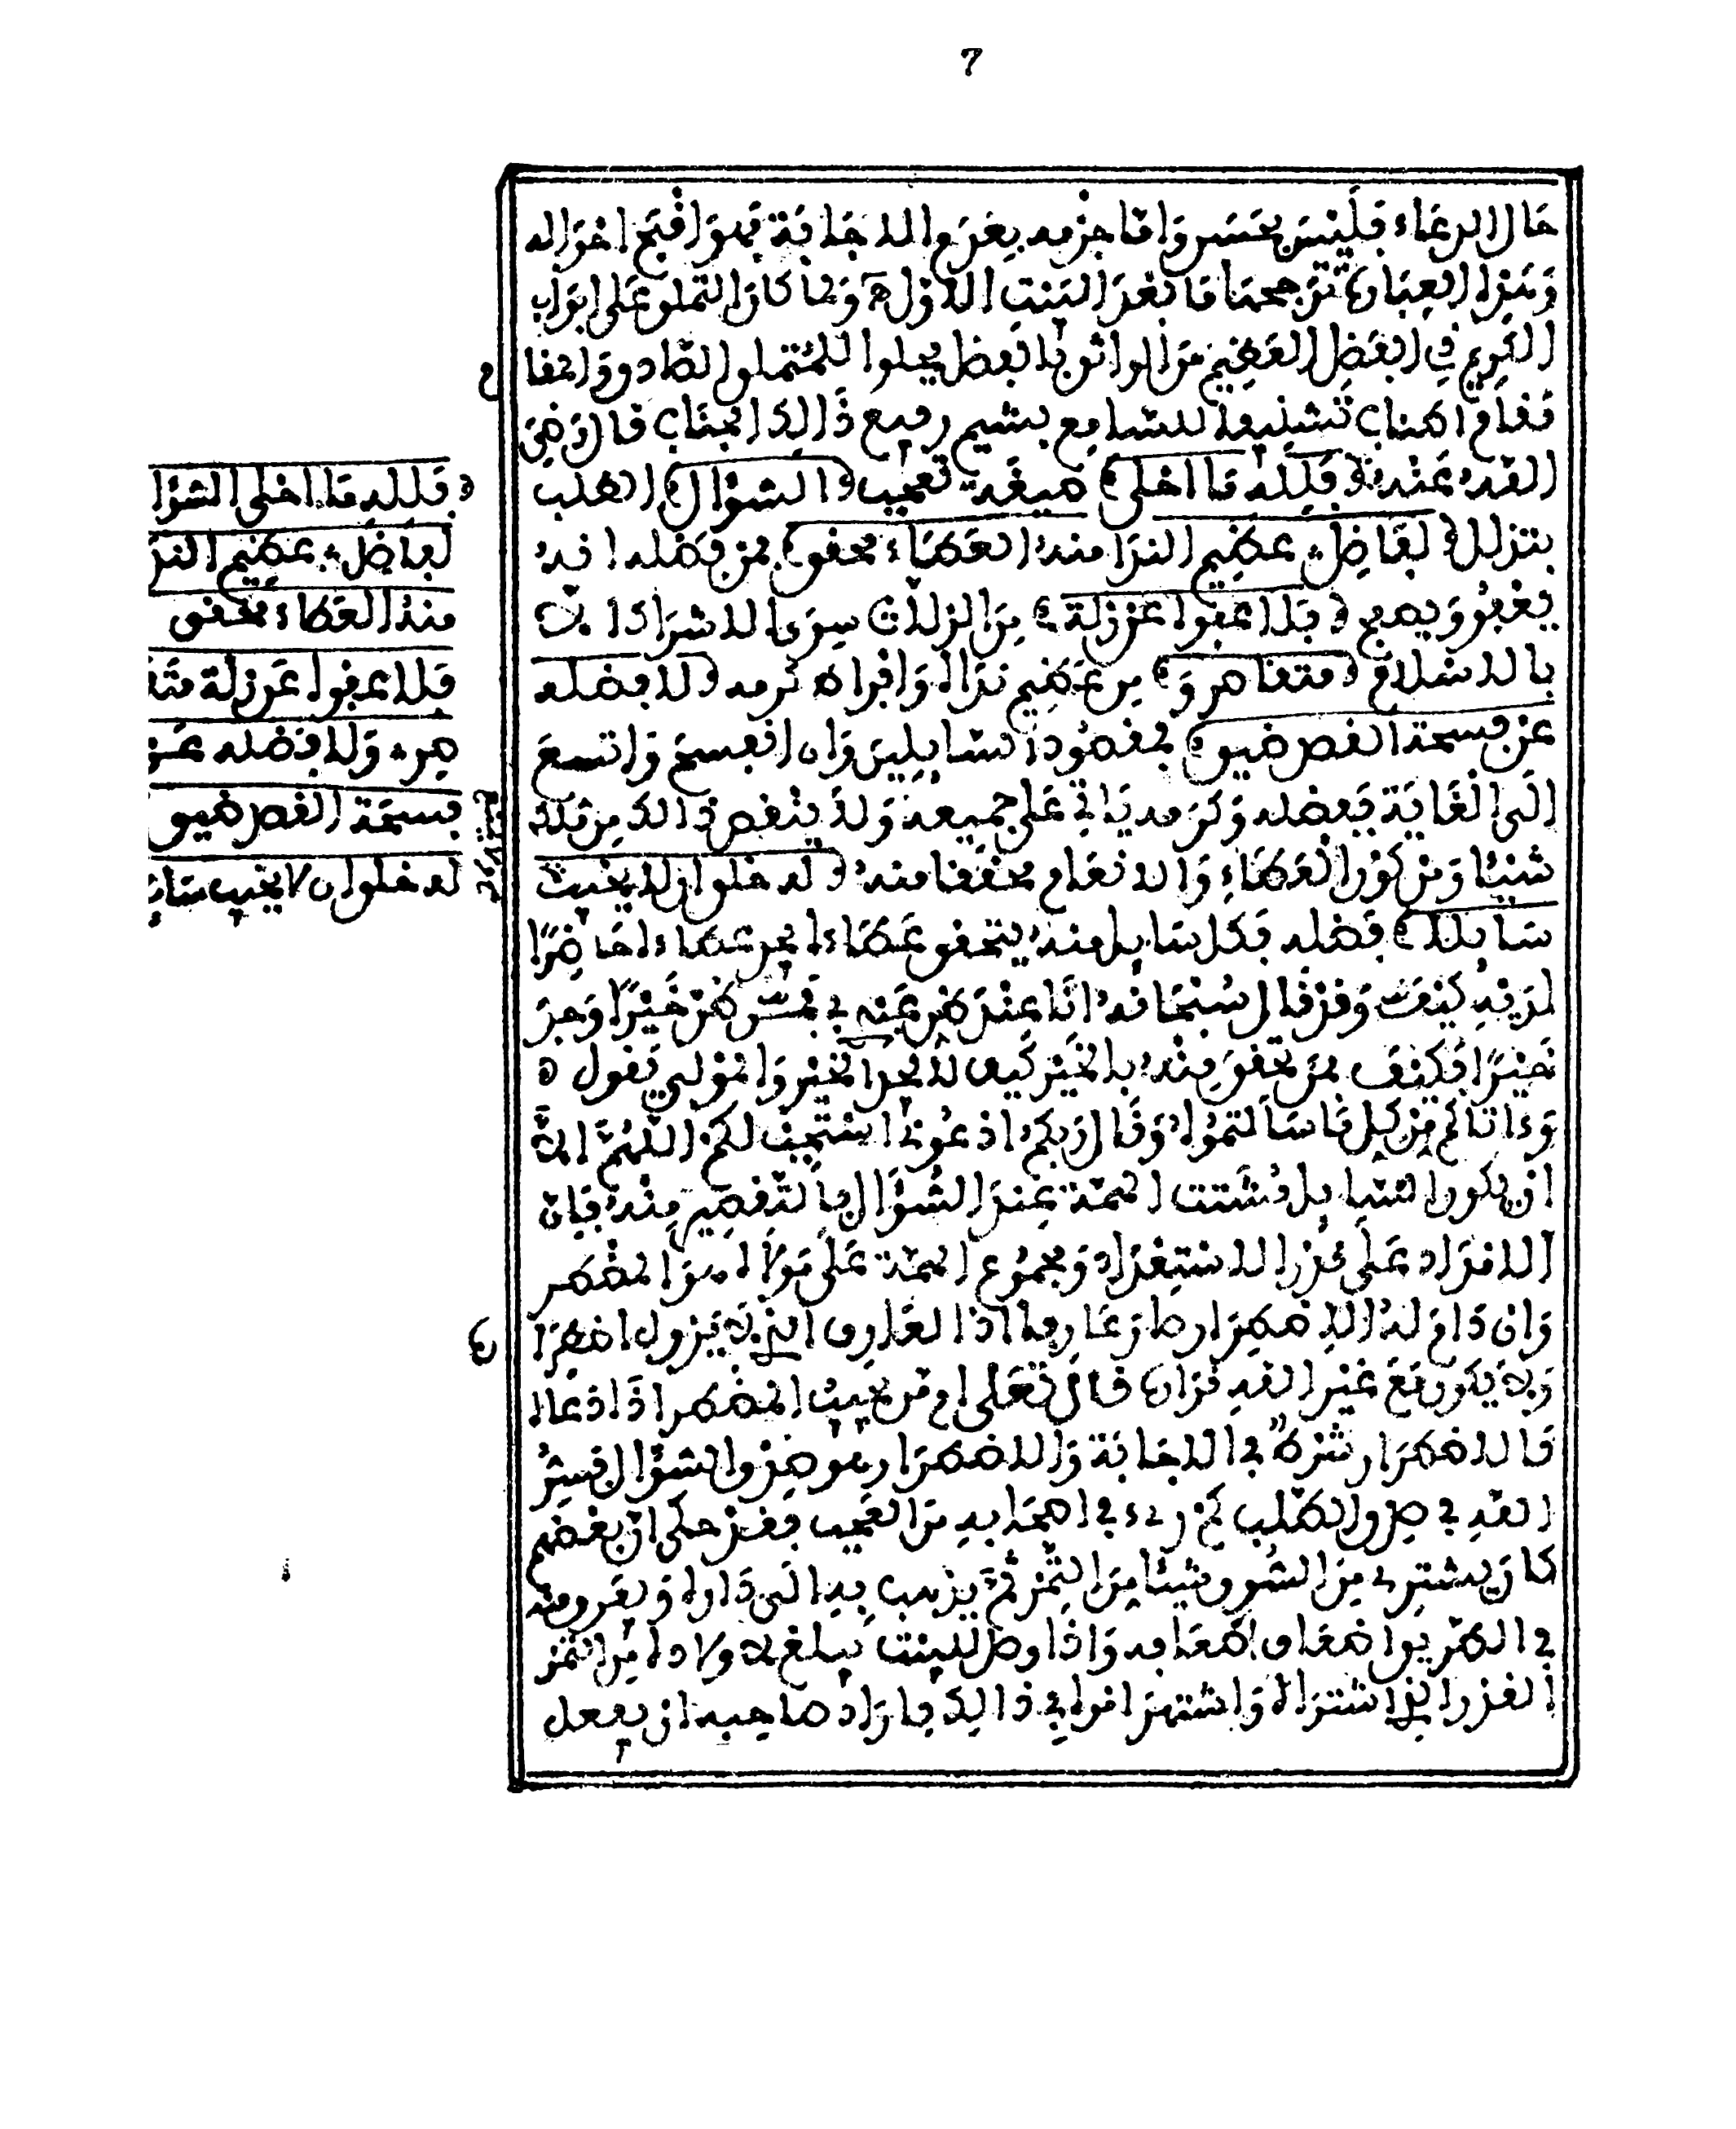 7
حال الدعاء فليس بحسن واما جزمه بعدم الاجابة فهو اقبح احواله
وهذه العبارة ترجمها ما بعد البيت الاول ولما كان التملق على ابواب
الكريم ذي الفضل العظيم من الواثق بالفضل يحلوا للمتملق الصادق والمفا
مقام اطناب تشنيفا للسامع بشيم رفيع ذالك الجناب قال رضي
الله عنه ﴿فلله ما احلى﴾ صيغة تعجب ﴿السؤال﴾ الطلب
بتذلل ﴿لفاضل عظيم الندا منه العطاء محقق﴾ بمن فضله انه
يعفو ويصفح ﴿فلا عفوا عن زلة﴾ من الزلات سوى الاشراك ان
بالاسلام ﴿متعاصر و﴾ من عظيم نداه وافراه كرمه ﴿لا فضله
عن فسحة القصد ضيق﴾ لمقصود السايلين وان انفسح واتسع
الى الغاية ففضله وكرمه ياتي على جميعه ولا ينقص ذالك من ملكه
شيئا ومن كون العطاء والانعام محققا منه ﴿لدخلوان لا يخيب
سايلا﴾ فضله فكل سايل منه يتحقق عطاءه اي عطاء حاضرا
لديه كيف وقد قال سبحانه انا عند ظن عبدي بي فمن ظن خيرا وجد
خيرا فكيف بمن تحقق منه بالخير كيف لا يجد الخير والمولى يقول
وءاتاكم من كل ما سالتموه وقال ربكم ادعوني استجب لكم اللهم الا
ان يكون السايل مشتت الهمة عند السؤال فالتقصير منه فان
الامداد على قدر الاستعداد ومجموع الهمة على مولاه هو المضطر
وان دام له الاضطرار صار عارفا اذ العارف الذي لا يزول اضطرا
ولا يكون مع غير الله قراره قال تعلى ام من يجيب المضطر اذا دعاه
فالاضطرار شرط في الاجابة والاضطرار هو صدق السؤال فسر
الله في صدق الطلب كم رءي في اصحابه من العجب فقد حكي ان بعضهم
كان يشتري من السوق شيئا من التمر ثم يذهب به الى داره ويفرق منه
في الطريق اضعاف اضعافه واذا وصل للبيت يبلغ لاولاده من التمر
القدر الذي اشتراه واشتهر امره في ذالك فاراد صاحبه ان يفعل
﴿فلله ما احلى السؤا
لفاضل عظيم الند
منه العطاء محقق
فلا عفوا عن زلة متعا
صر ولا فضله عن
فسحة القصد ضيق
لد خلوان لا يخيب سايـ